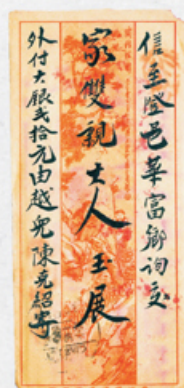 信至澄邑華富鄉詢交
家雙親大人玉展
外付大銀弍拾元由越兒陳克紹寄